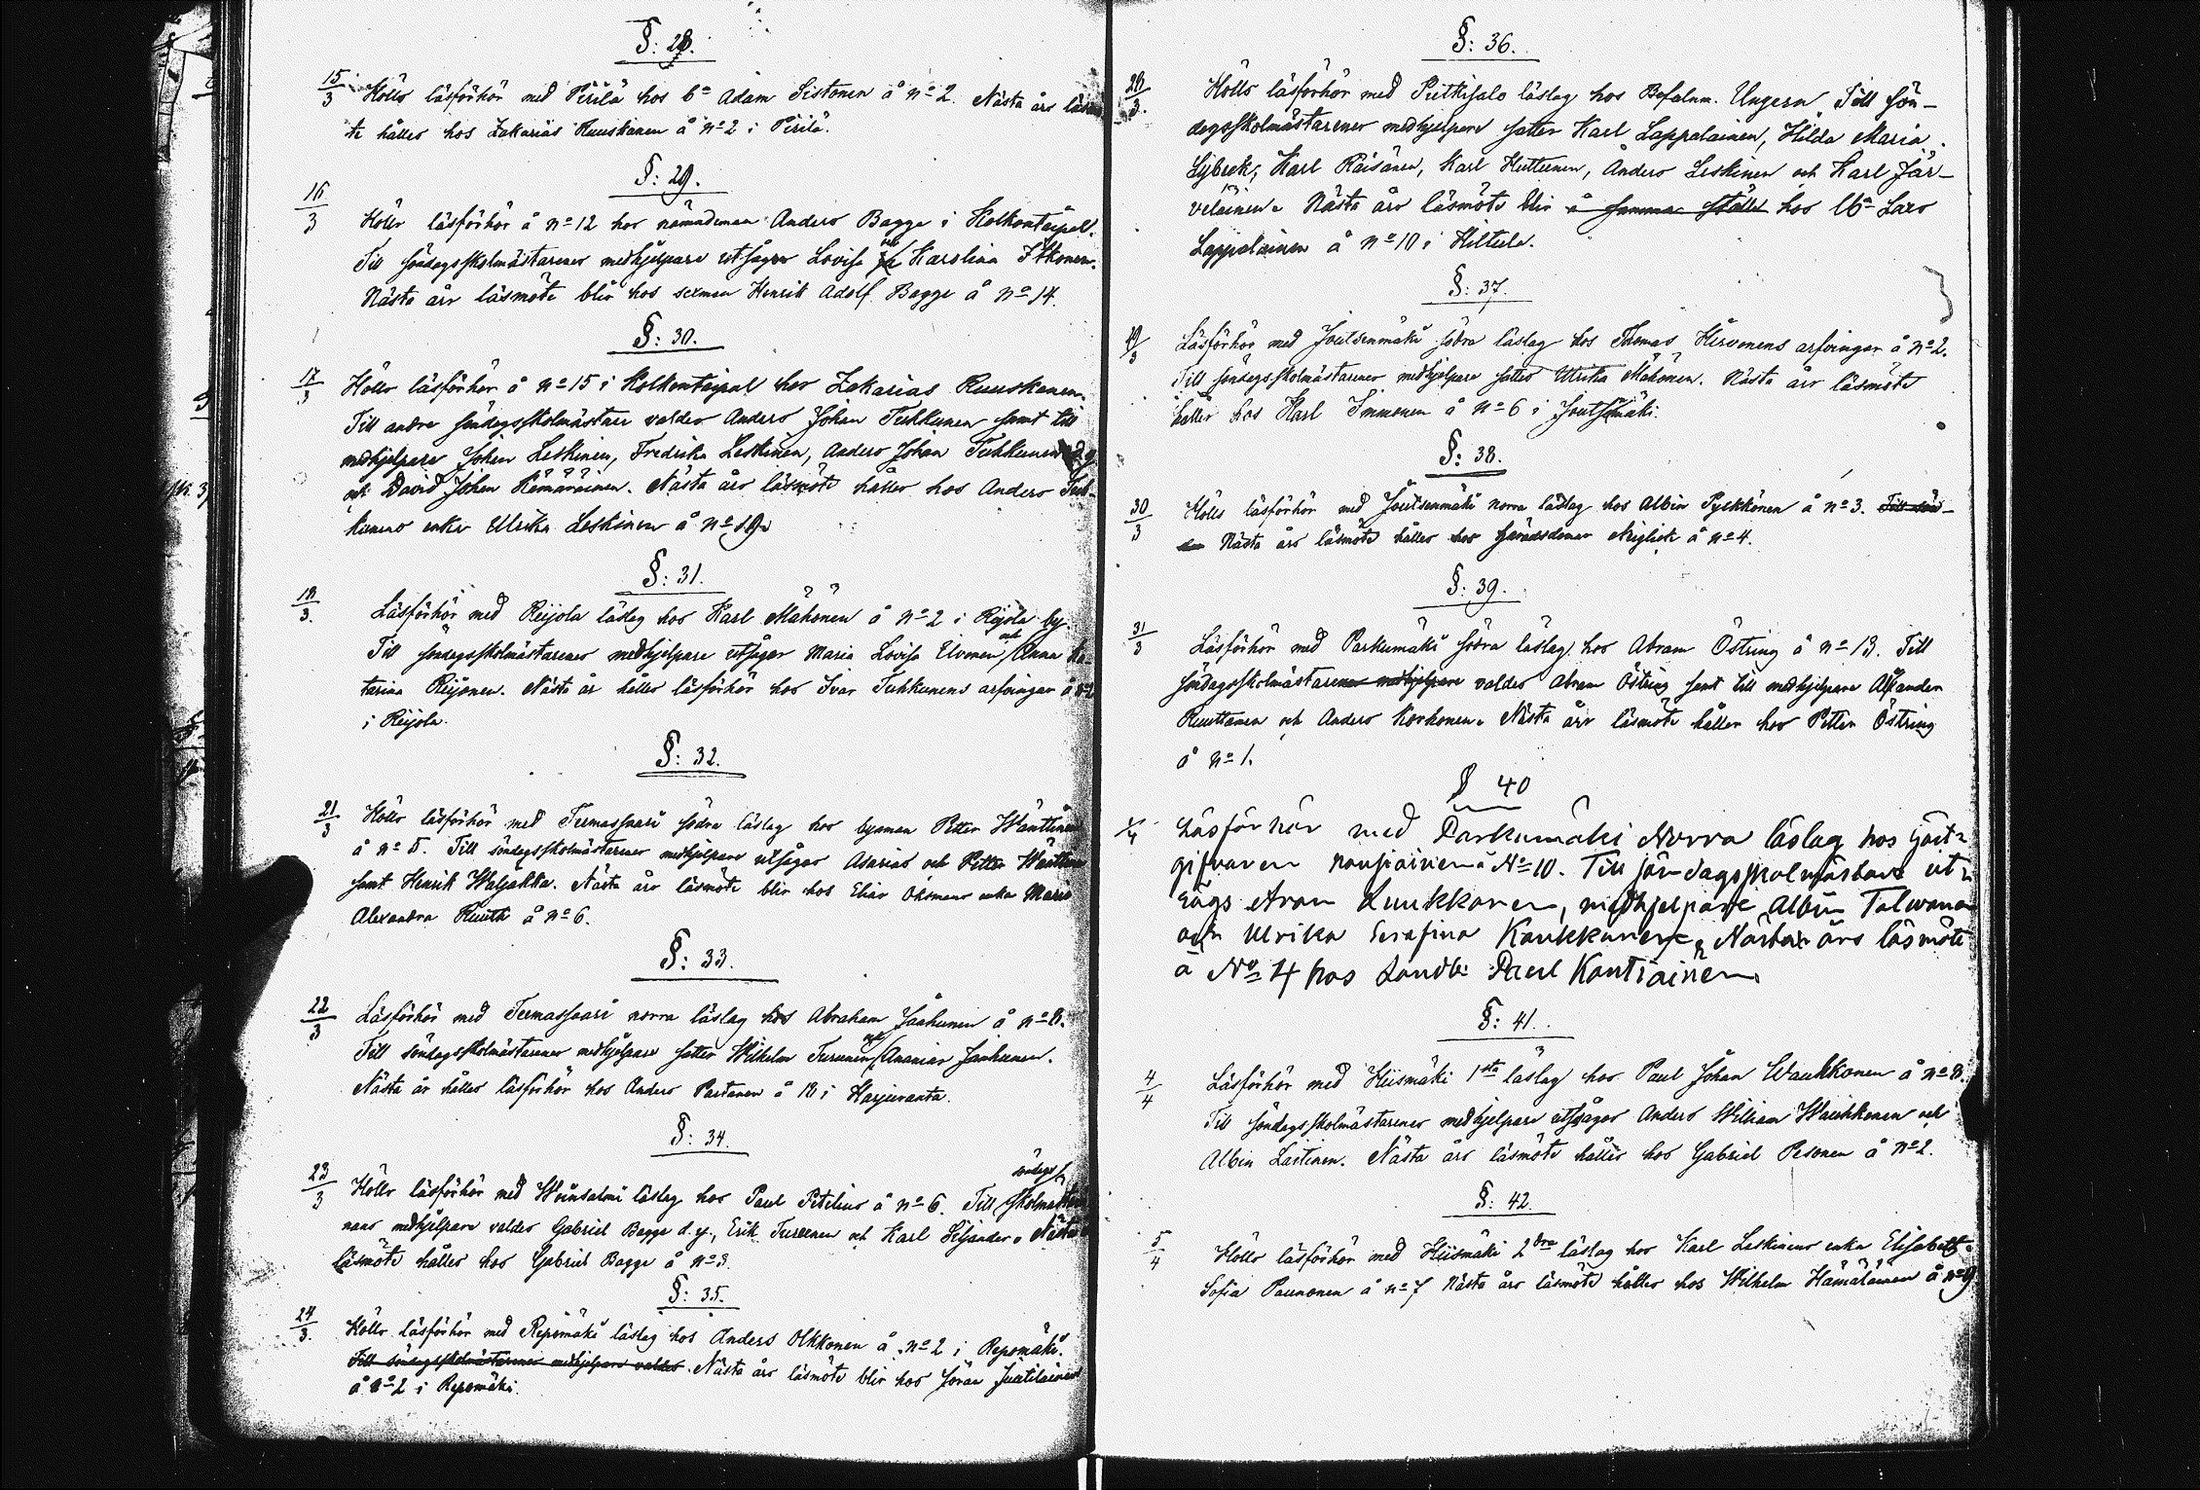 §: 28.
15/3 Hölls läsförhör med Pirilä hos bn Adam Sistonen å No 2. Nästa års läsmö-
te hålles hos Zakarias Ruuskanen å No 2 i Pirilä.
§: 29.
16/3 Hölls läsförhör å No 12 hos nämndeman Anders Bagge i Kolkontaipal.
Till söndagsskolmästarenes medhjelpare utsågos Lovisa och Karolina Itkonen.
Nästa års läsmöte blir hos sexman Henrik Adolf Bagge å No 14.
§: 30.
17/3 Hölls läsförhör å No 15 i Kolkontaipal hos Zakarias Ruuskanen.
Till andre söndagsskolmästare valdes Anders Johan Tuhkunen samt till
medhjelpare Johan Leskinen, Fredrika Leskinen, Anders Johan Tuhkunen
och David Johan Hämäläinen. Nästa års läsmöte hålles hos Anders Tuh-
kunens enka Ulrika Leskinen å No 19.
§: 31.
18/3. Läsförhör med Reijola läslag hos Karl Mähönen å No 2 i Reijola by.
Till söndagsskolmästarenes medhjelpare utsågos Maria Lovisa Elvonen och Anna Ka-
tarina Reijonen. Nästa år hålles läsförhör hos Ivar Tuhkunens arfvingar å No 2
i Reijola.
§: 32.
21/3 Hölls läsförhör med Teemassaari södra läslag hos byaman Petter Wänttinen
å No 5. Till söndagsskolmästarenes medhjelpare utsågos Asarias och Petter Wänttinen
samt Henrik Waljakka. Nästa års läsmöte blir hos Elias Öhmans enka Maria
Alexandra Ruuth å No 6.
§: 33.
22/3 Läsförhör med Teemassaari norra läslag hos Abraham Jauhunen å No 8.
Till söndagsskolmästarenes medhjelpare sattes Wilhelm Turunen och Ananias Jauhunen.
Nästa år hålles läsförhör hos Anders Partanen å 18 i Harjuranta.
§: 34.
23/3 Hölls läsförhör med Woinsalmi läslag hos Paul Petelius å No 6. Till söndagsskolmästare-
nans medhjelpare valdes Gabriel Bagge d.y., Erik Turunen och Karl Siljander. Nästa
läsmöte hålles hos Gabriel Bagge å No 3.
§: 35.
24/3. Hölls läsförhör med Repomäki läslag hos Anders Olkkonen å No 2 i Repomäki.
Till söndagsskolmästarenes medhjelpare valdes. Nästa års läsmöte blir hos Göran Juutilainen
å No 2 i Repomäki.
§: 36.
28/3. Hölls läsförhör med Putkisalo läslag hos Befalnm. Ungern. Till sön-
dagsskolmästarenes medhjelpare sattes Karl Lappalainen, Hilda Maria
Lybeck, Karl Räisänen, Karl Huttunen, Anders Leskinen och Karl Jär-
veläinen. Nästa års läsmöte blir å samma ställe hos lbn Lars
Lappalainen å No 10 i Hiltula.
§: 37.
29/3 Läsförhör med Joutsenmäki södra läslag hos Thomas Hirvonens arfvingar å No 2.
Till söndagsskolmästarenes medhjelpare sattes Ulrika Mähönen. Nästa års läsmöte
hålles hos Karl Immonen å No 6 i Joutsenmäki.
§: 38.
30/3 Hölls läsförhör med Joutsenmäki norra läslag hos Albin Pyykkönen å No 3. Till sön-
Nästa års läsmöte hålles hos häradsdomar Neiglick å No 4.
§: 39.
31/3 Läsförhör med Parkumäki södra läslag hos Abram Östring å No 13. Till
söndagsskolmästarenes medhjelpare valdes Abram Östring samt till medhjelpare Alexander
Ruuttanen och Anders Korhonen. Nästa års läsmöte hålles hos Petter Östring
å No 1.
§ 40
1/4 Läsförhör med Parkumäki Norra läslag hos Gäst-
gifvaren Kousiainen å No 10. Till söndagsskolmästare ut-
sågs Aron Luukkonen, medhjelpare Albin Tolwanen
och Ulrika Serafina Kaukkunen, Nästa års läsmöte
å No 4 hos Landb: Paul Kontiainen.
§: 41.
4/4 Läsförhör med Hiismäki 1sta läslag hos Paul Johan Wauhkonen å No 8.
Till söndagsskolmästarenes medhjelpare utsågos Anders William Wauhkonen och
Albin Laitinen. Nästa års läsmöte hålles hos Gabriel Pesonen å No 2.
§: 42.
5/4 Hölls läsförhör med Hiismäki 2dra läslag hos Karl Leskinens enka Elisabeth
Sofia Paunonen å No 7 Nästa års läsmöte hålles hos Wilhelm Hämäläinen å No 9.